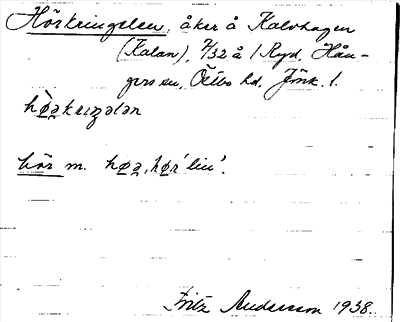 Hörkringelen, åker å Kalvhagen
(Kalan), 7/32 å 1 Ryd, Hån-
gers sn, Östbo hd. Jönk. l.
hø̀əkriŋələn
hör m. høə, hør 'lin'.
Fritz Andersson 1938.